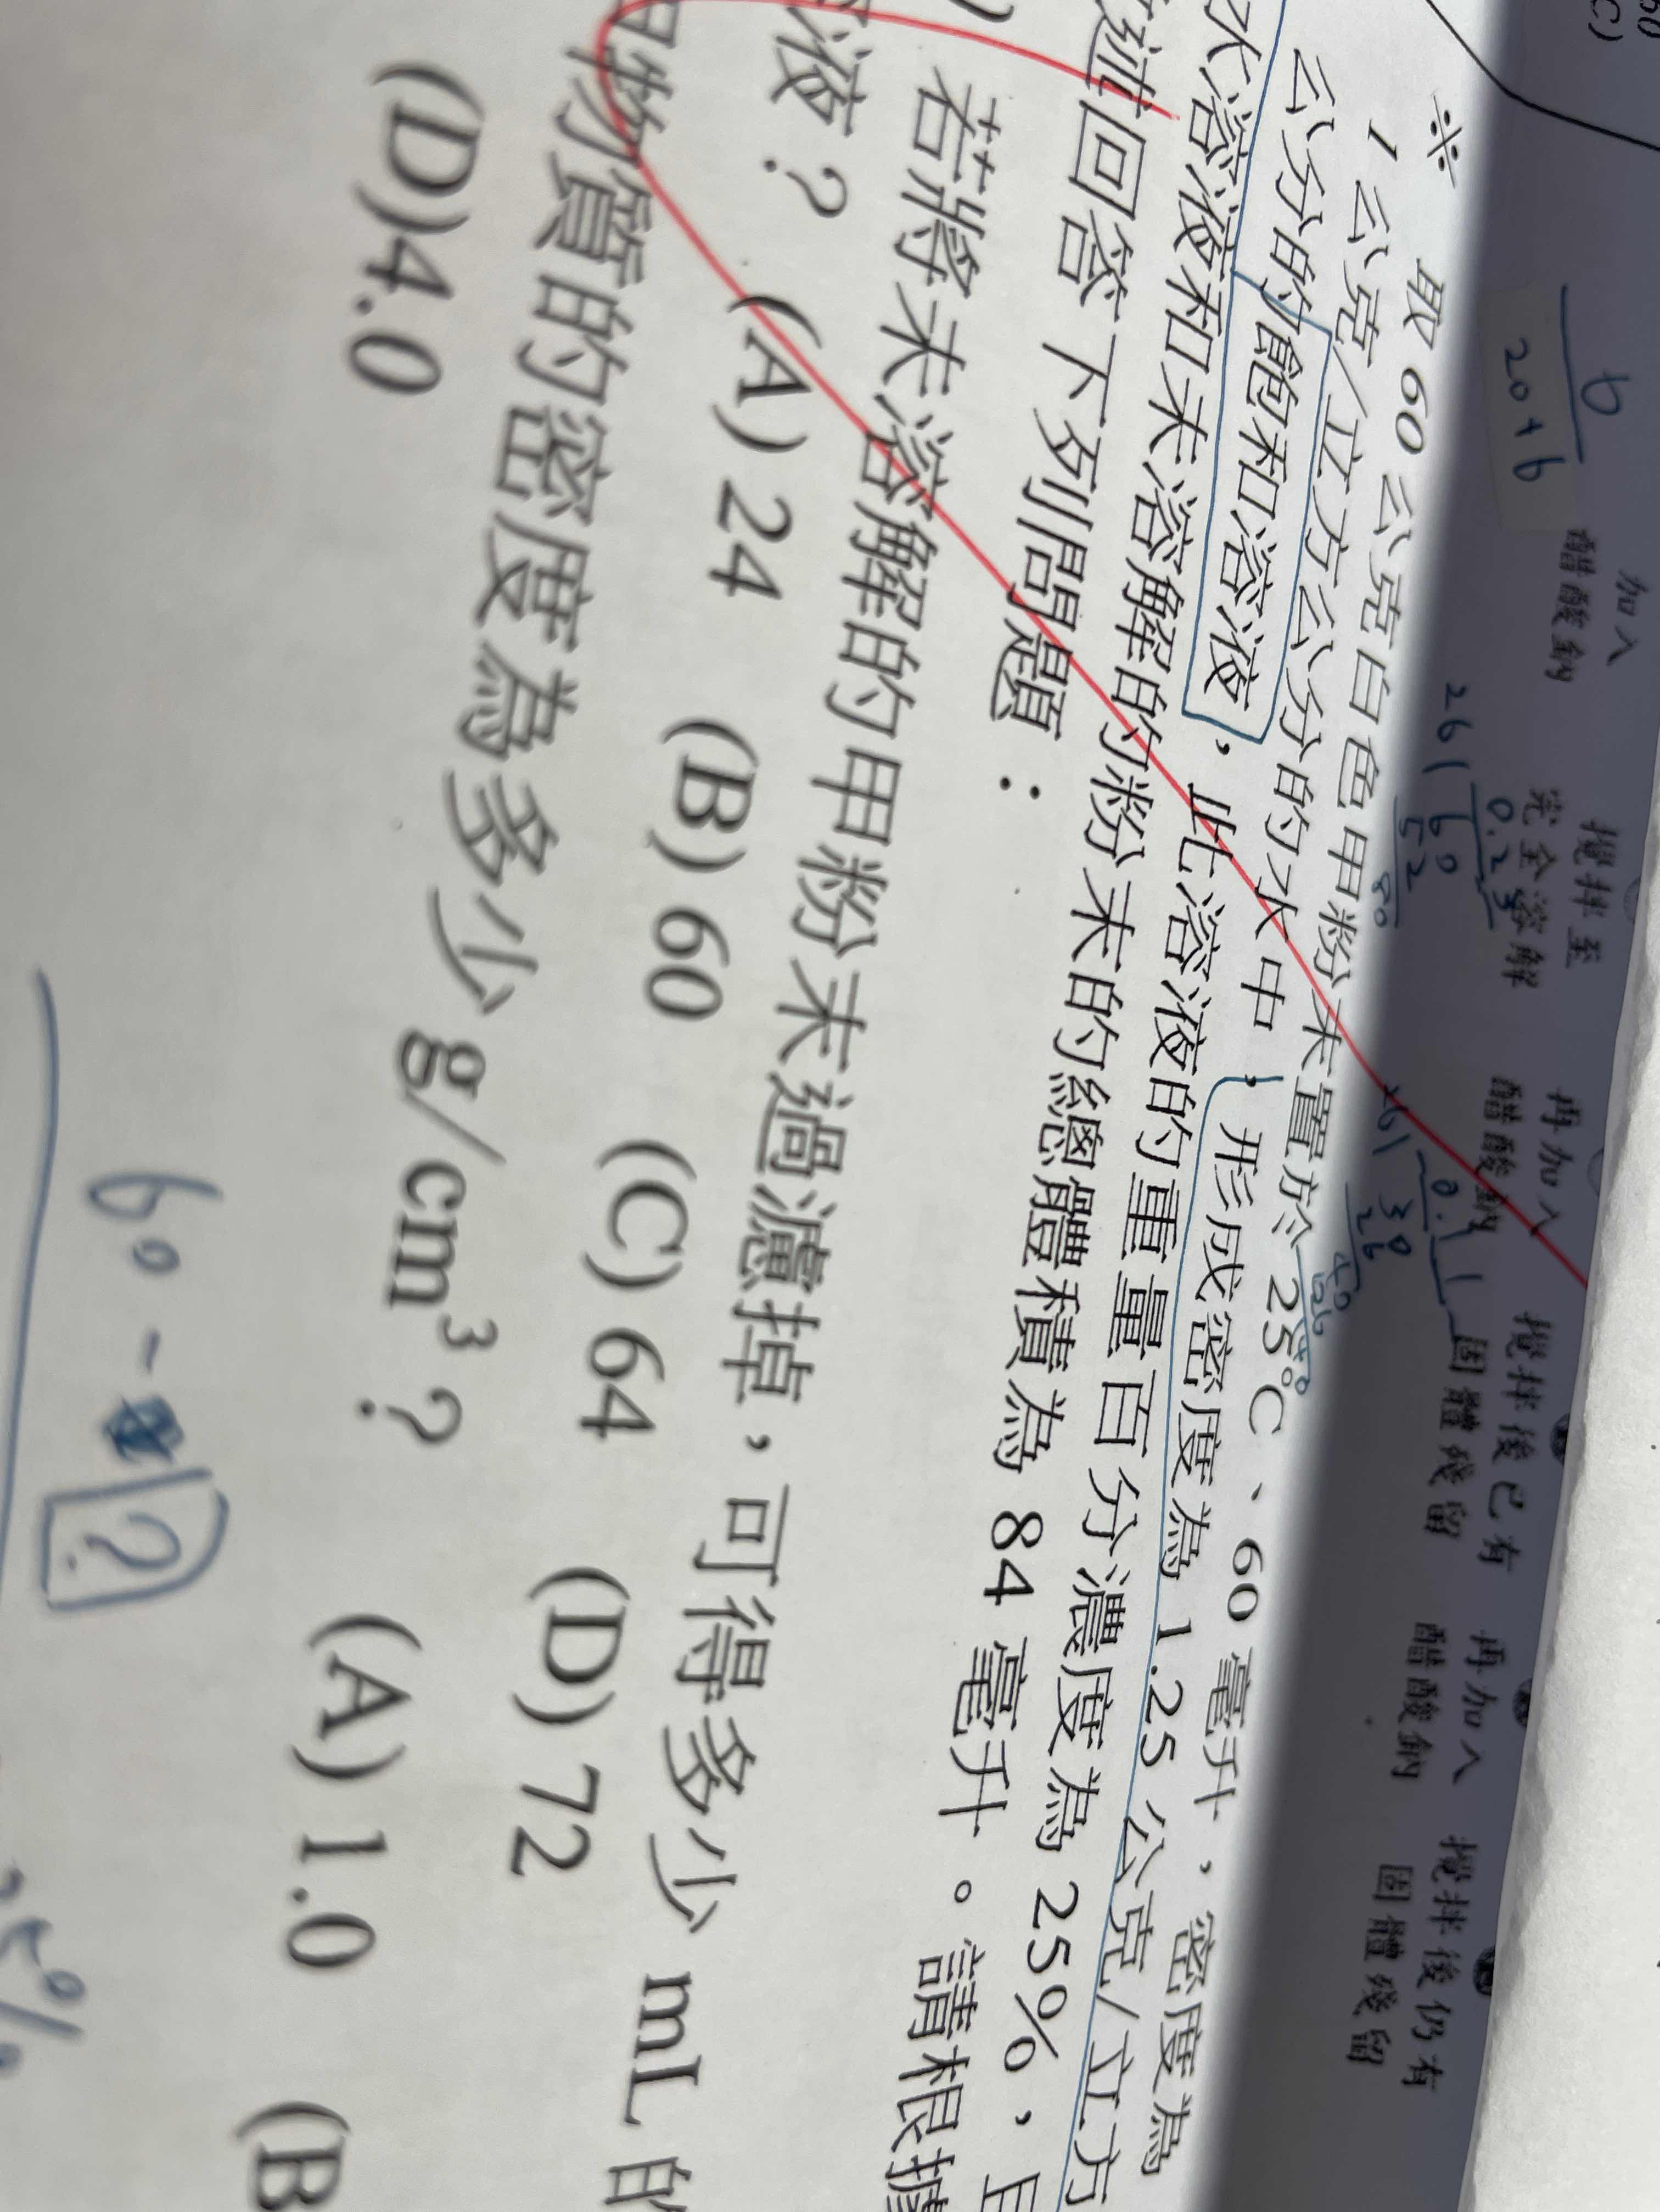 60
C)
b
20+b
加入
醋酸鈉
攪拌至
完全溶解
再加入
醋酸鈉
攪拌後已有
固體殘留
再加入
醋酸鈉
攪拌後仍有
固體殘留
0.23
261 60
52
80
0.11
261 30
26
40
※ 取 60 公克白色甲粉末置於 25°C、60 毫升,密度為
1 公克/立方公分的水中,形成密度為 1.25 公克/立方
公分的飽和溶液,此溶液的重量百分濃度為 25%,且
水溶液和未溶解的粉末的總體積為 84 毫升。請根據
述回答下列問題:
) 若將未溶解的甲粉末過濾掉,可得多少 mL 的
液? (A) 24 (B) 60 (C) 64 (D) 72
物質的密度為多少 g/cm³? (A) 1.0 (B
(D)4.0
60 - ?
25%